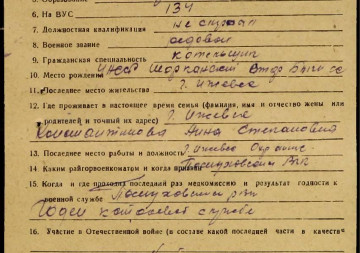 134
6. На ВУС
7. Должностная квалификация не служил
8. Военное звание рядовой
9. Гражданская специальность котельщик
10. Место рождения
11. Последнее место жительства г. Ижевск
12. Где проживает в настоящее время семья (фамилия, имя и отчество жены или
родителей и точный их адрес) г. Ижевск
Константинова Анна Степановна
13. Последнее место работы и должность г. Ижевск
14. Каким райгорвоенкоматом и когда призван Пастуховским РВК
15. Когда и где проходил последний раз медкомиссию и результат годности к
военной службе Пастуховский рвк
Годен к строевой службе
16. Участие в Отечественной войне (в составе какой последней части в качестве